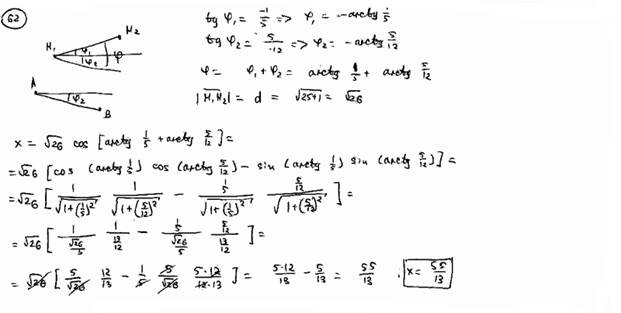 62
M₂
M₁ φ₁ φ₂ φ
A φ₂
B
tg φ₁ = -1/5 => φ₁ = -arctg 1/5
tg φ₂ = 5/-12 => φ₂ = -arctg 5/12
φ = φ₁ + φ₂ = arctg 1/5 + arctg 5/12
|M₁M₂| = d = √25+1 = √26
x = √26 cos [arctg 1/5 + arctg 5/12] =
= √26 [cos (arctg 1/5) cos (arctg 5/12) - sin (arctg 1/5) sin (arctg 5/12)] =
= √26 [ 1/√1+(1/5)² 1/√1+(5/12)² - 1/5/√1+(1/5)² 5/12/√1+(5/12)² ] =
= √26 [ 1/(√26/5) 1/(13/12) - (1/5)/(√26/5) (5/12)/(13/12) ] =
= √26 [ 5/√26 12/13 - 1/5 5/√26 5·12/12·13 ] = 5·12/13 - 5/13 = 55/13 . x = 55/13